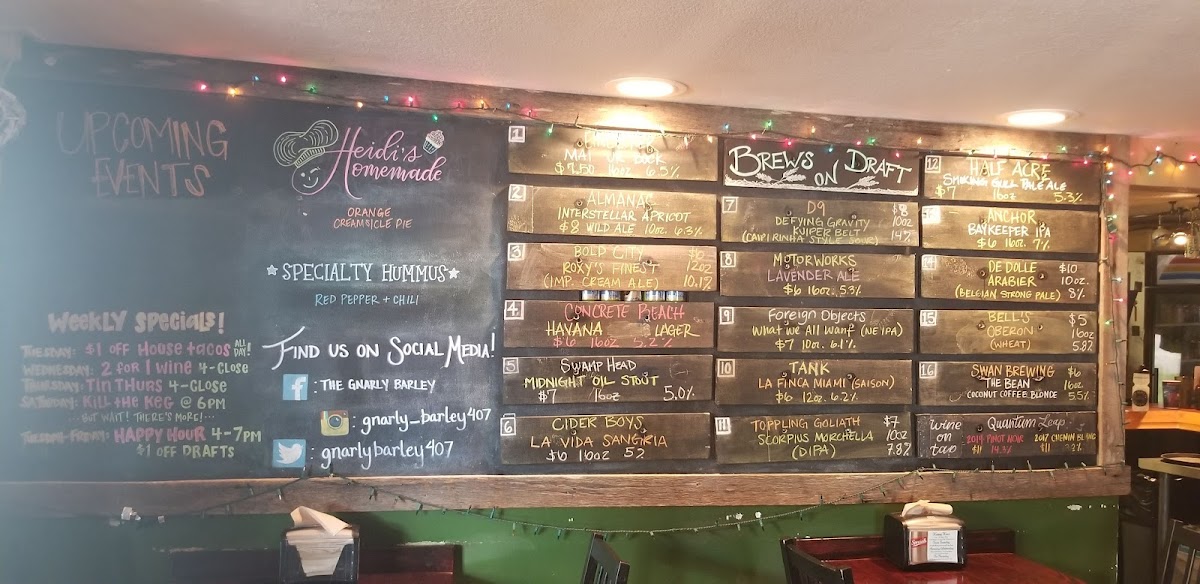 UPCOMING
EVENTS
Weekly Specials!
TUESDAY: $1 off House tacos ALL DAY!
WEDNESDAY: 2 for 1 wine 4-Close
THURSDAY: Tin THURS 4-CLOSE
SATURDAY: Kill the Keg @ 6PM
...BUT WAIT! THERE'S MORE!...
TUESDAY-FRIDAY: HAPPY HOUR 4-7PM
$1 OFF DRAFTS
Heidi's
Homemade
ORANGE
CREAMSICLE PIE
SPECIALTY HUMMUS
RED PEPPER + CHILI
FIND US ON SOCIAL MEDIA!
: THE GNARLY BARLEY
: gnarly_barley407
: gnarlybarley407
1
BOCK
$7.50 16oz 6.5%
2
ALMANAC
INTERSTELLAR APRICOT
$8 WILD ALE 10oz. 6.3%
3
BOLD CITY
ROXY'S FINEST 12oz
(IMP. CREAM ALE) 10.1%
4
CONCRETE BEACH
HAVANA LAGER
$6 16oz 5.2%
5
SWAMP HEAD
MIDNIGHT OIL STOUT
$7 16oz 5.0%
6
CIDER BOYS
LA VIDA SANGRIA
$6 16oz 5.2
BREWS ON DRAFT
7
D9 $8
DEFYING GRAVITY 10oz
KUIPER BELT
(CAIPIRINHA STYLE SOUR) 14%
8
MOTORWORKS
LAVENDER ALE
$6 16oz. 5.3%
9
Foreign Objects
What We All Want (NE IPA)
$7 10oz. 6.1%
10
TANK
LA FINCA MIAMI (SAISON)
$6 12oz. 6.2%
11
TOPPLING GOLIATH $7
SCORPIUS MORCHELLA 10oz
(DIPA) 7.8%
12
HALF ACRE
SMOKING GULL PALE ALE
$7 16oz 5.3%
ANCHOR
BAYKEEPER IPA
$6 16oz. 7%
14
DE DOLLE $10
ARABIER 10oz.
(BELGIAN STRONG PALE) 8%
15
BELL'S $5
OBERON 16oz
(WHEAT) 5.8%
16
SWAN BREWING $6
THE BEAN 16oz
COCONUT COFFEE BLONDE 5.5%
wine on tap
Quantum Leap
2014 PINOT NOIR 2017 CHENIN BLANC
$11 14.3% $11